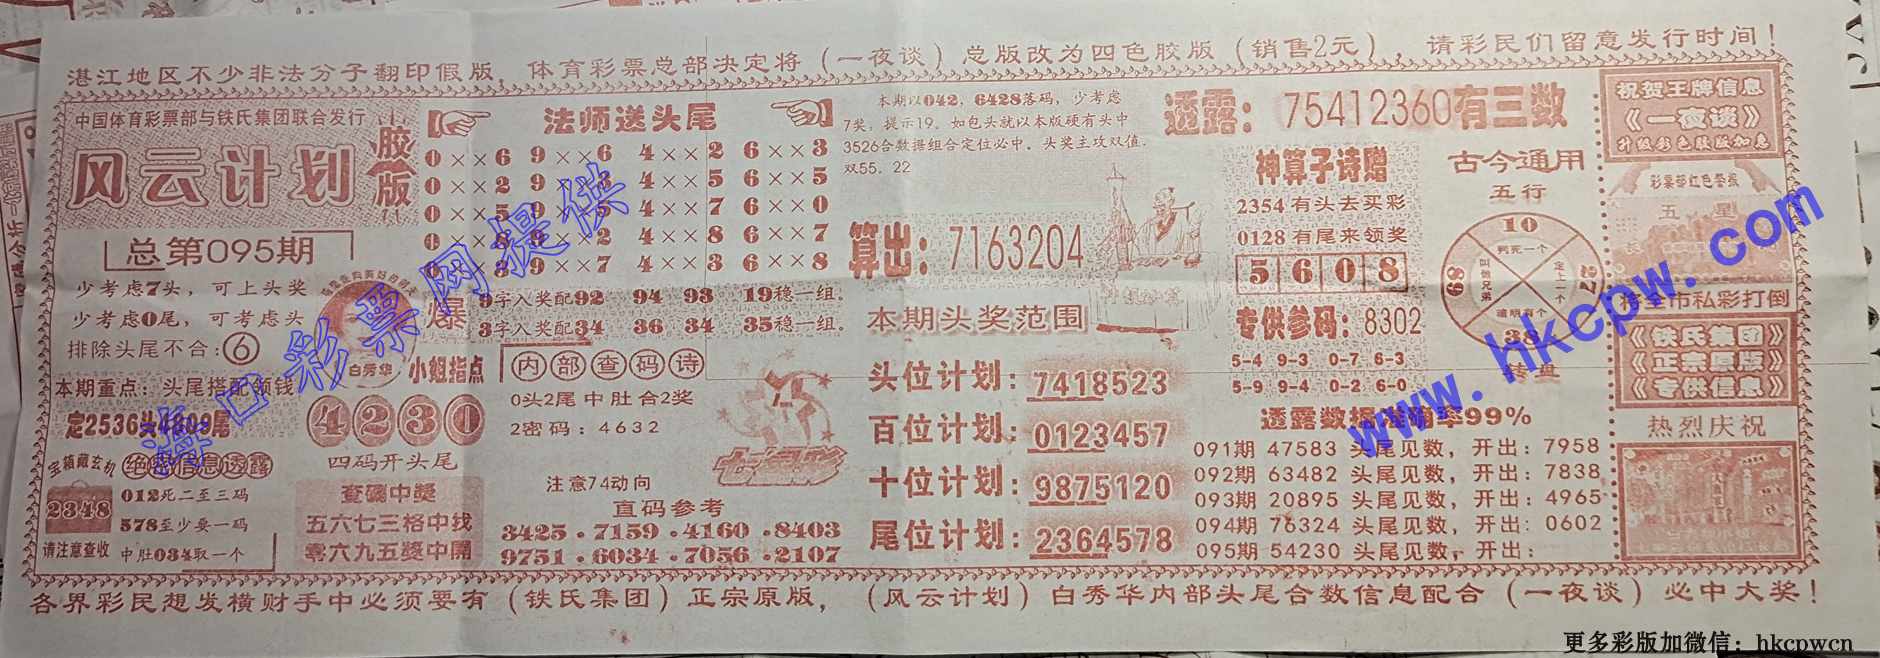 湛江地区不少非法分子翻印假版，体育彩票总部决定将（一夜谈）总版改为四色胶版（销售2元），请彩民们留意发行时间！
中国体育彩票部与铁氏集团联合发行
风云计划
胶版
总第095期
少考虑7头，可上头奖
少考虑0尾，可考虑头
排除头尾不合：6
本期重点：头尾搭配领钱
定2536头4809尾
宝箱藏玄机
绝密信息透露
2348
请注意查收
012死二至三码
578至少要一码
中肚034取一个
法师送头尾
0××6 9××6 4××2 6××3
0××2 9××3 4××5 6××5
0××5 9××5 4××7 6××0
0××8 9××2 4××8 6××7
0××9 9××7 4××3 6××8
爆
9字入奖配92 94 93 19稳一组。
3字入奖配34 36 34 35稳一组。
白秀华
小姐指点
4230
四码开头尾
查码中奖
五六七三格中找
零六九五獎中開
内部查码诗
0头2尾中肚合2奖
2密码：4632
七星彩
注意74动向
直码参考
3425.7159.4160.8403
9751.6034.7056.2107
本期以042，6428落码，少考虑
7奖，提示19。如包头就以本版硬有头中
3526合数据组合定位必中。头奖主攻双值
双55．22
算出：7163204
本期头奖范围
头位计划：7418523
百位计划：0123457
十位计划：9875120
尾位计划：2364578
透露：75412360有三数
神算子诗赠
2354有头去买彩
0128有尾来领奖
5608
专供参码：8302
5-4 9-3 0-7 6-3
5-9 9-4 0-2 6-0
古今通用
五行
10
判死一个
89
叫做兄弟
定上一个
27
追明有个
38
转盘
透露数据准确率99%
091期 47583 头尾见数，开出：7958
092期 63482 头尾见数，开出：7838
093期 20895 头尾见数，开出：4965
094期 76324 头尾见数，开出：0602
095期 54230 头尾见数，开出：
祝贺王牌信息
《一夜谈》
升级彩色胶版如意
彩票部红色警报
五星
将全市私彩打倒
《铁氏集团》
《正宗原版》
《专供信息》
热烈庆祝
各界彩民想发横财手中必须要有（铁氏集团）正宗原版，（风云计划）白秀华内部头尾合数信息配合（一夜谈）必中大奖！
海口彩票网提供
www.hkcpw.com
更多彩版加微信：hkcpwcn